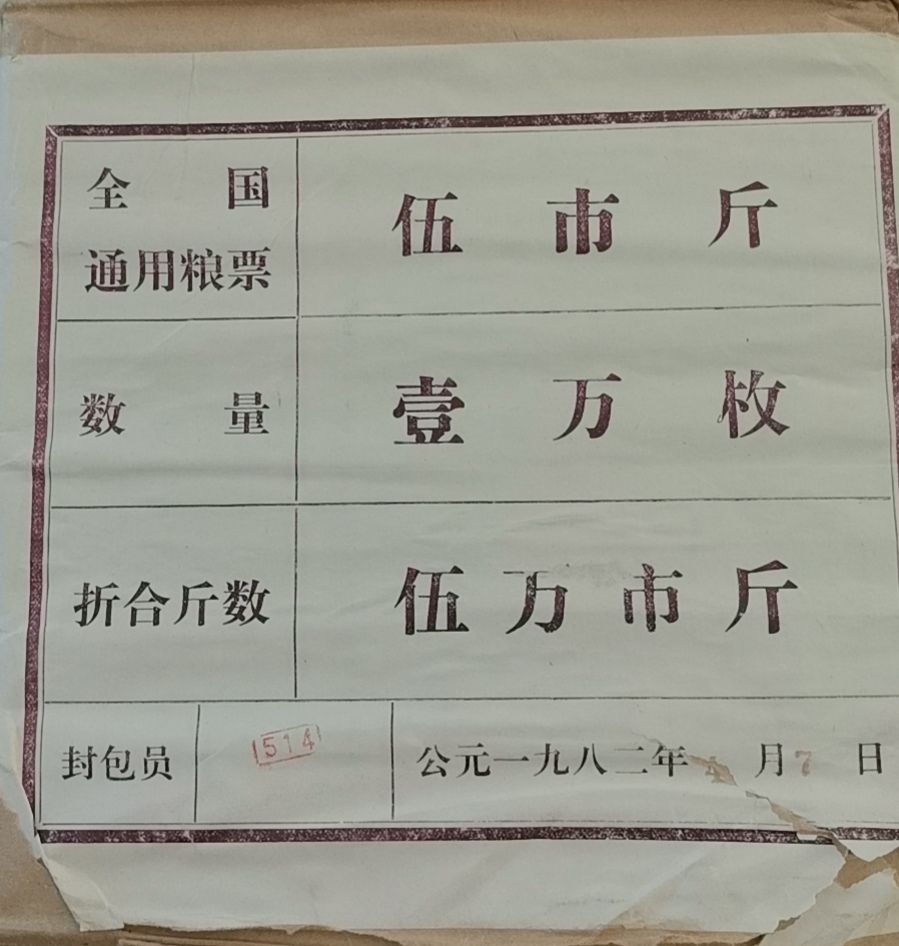 全国
通用粮票
伍市斤
数量
壹万枚
折合斤数
伍万市斤
封包员
514
公元一九八二年 月7日